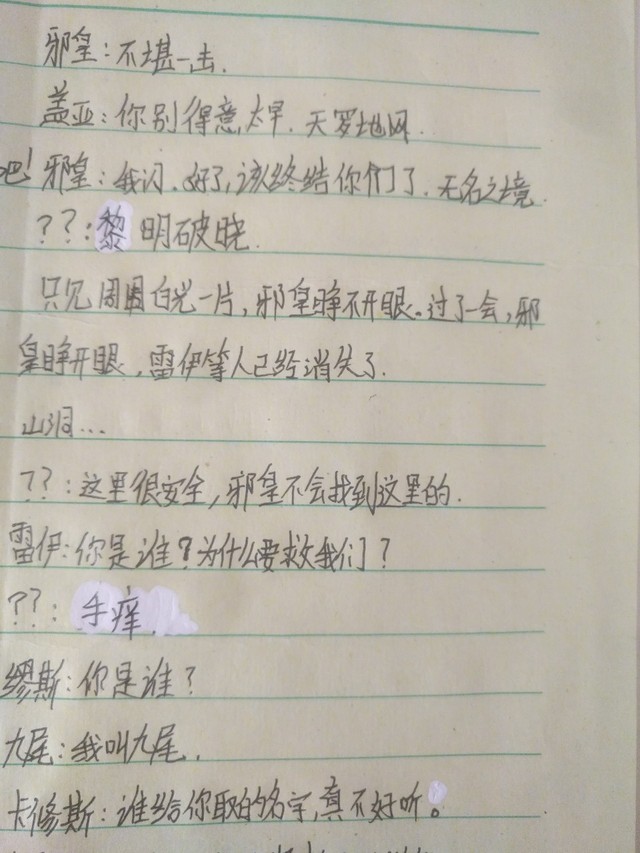 邪皇：不堪一击.
盖亚：你别得意太早.天罗地网.
吧！邪皇：我闪.好了,该终结你们了.无名之境.
??:黎明破晓.
只见周围白光一片,邪皇睁不开眼。过了一会,邪
皇睁开眼,雷伊等人已经消失了.
山洞...
??:这里很安全,邪皇不会找到这里的.
雷伊:你是谁?为什么要救我们?
??:手痒.
缪斯:你是谁?
九尾:我叫九尾.
卡修斯:谁给你取的名字,真不好听。